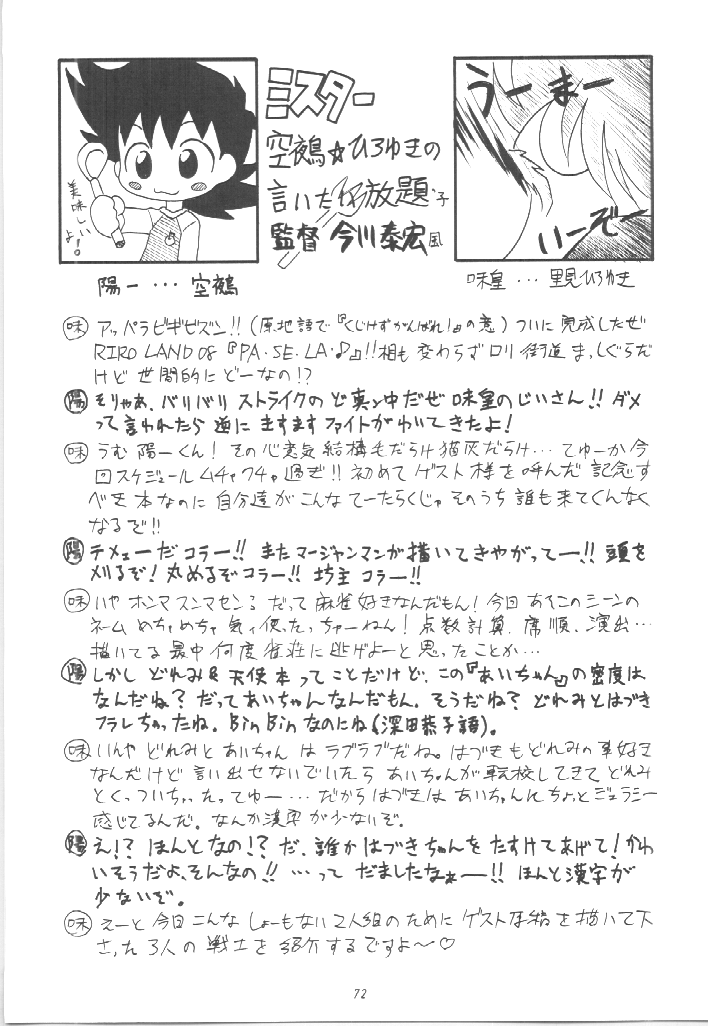 美味しいよ!
ミスター
空鵺☆ひろゆきの
言いた放題
監督 今川泰宏風
うーまー
いーぞー
陽一・・・空鵺
味皇・・・里見ひろゆき
味 アッパラビギビズン!!(原地語で『くじけずがんばれ!』の意)ついに完成したぜ
RIRO LAND 08『PA・SE・LA・♪』!!相も変わらずロリ街道まっしぐらだ
けど世間的にどーなの!?
陽 そりゃあ、バリバリストライクのど真ン中だぜ味皇のじいさん!!ダメ
って言われたら逆にますますファイトがわいてきたよ!
味 うむ陽一くん!その心意気結構毛だらけ猫灰だらけ…てゆーか今
回スケジュールムチャクチャ過ぎ!!初めてゲスト様を呼んだ記念す
べき本なのに自分達がこんなてーたらくじゃそのうち誰も来てくんなく
なるぞ!!
陽 テメューだコラー!!またマージャンマンが描いてきやがってー!!頭を
刈るぞ!丸めるぞコラー!!坊主コラー!!
味 いやホンマスンマセンるだって麻雀好きなんだもん!今回あそこのシーンの
ネームめちゃめちゃ気ィ使ったっちゃーねん!点数計算、席順、演出…
描いてる最中何度雀荘に逃げよーと思ったことか…
陽 しかしどれみ&天使本ってことだけど、この『あいちゃん』の密度は
なんだね?だってあいちゃんなんだもん。そうだね?どれみとはづき
フラレちゃったね。Bin Binなのにね(深田恭子語)。
味 いんやどれみとあいちゃんはラブラブだね。はづきもどれみの事好き
なんだけど言い出せないでいたらあいちゃんが転校してきてどれみ
とくっついちゃったってゆー…だからはづきはあいちゃんにちょっとジェラシー
感じてるんだ。なんか漢字が少ないぞ。
陽 え!?ほんとなの!?だ、誰かはづきちゃんをたすけてあげて!かわ
いそうだよ、そんなの!!…ってだましたなぁー!!ほんと漢字が
少ないぞ。
味 えーと今回こんなしょーもない2人組のためにゲスト原稿を描いて下
さった3人の戦士を紹介するですよ〜♡
72